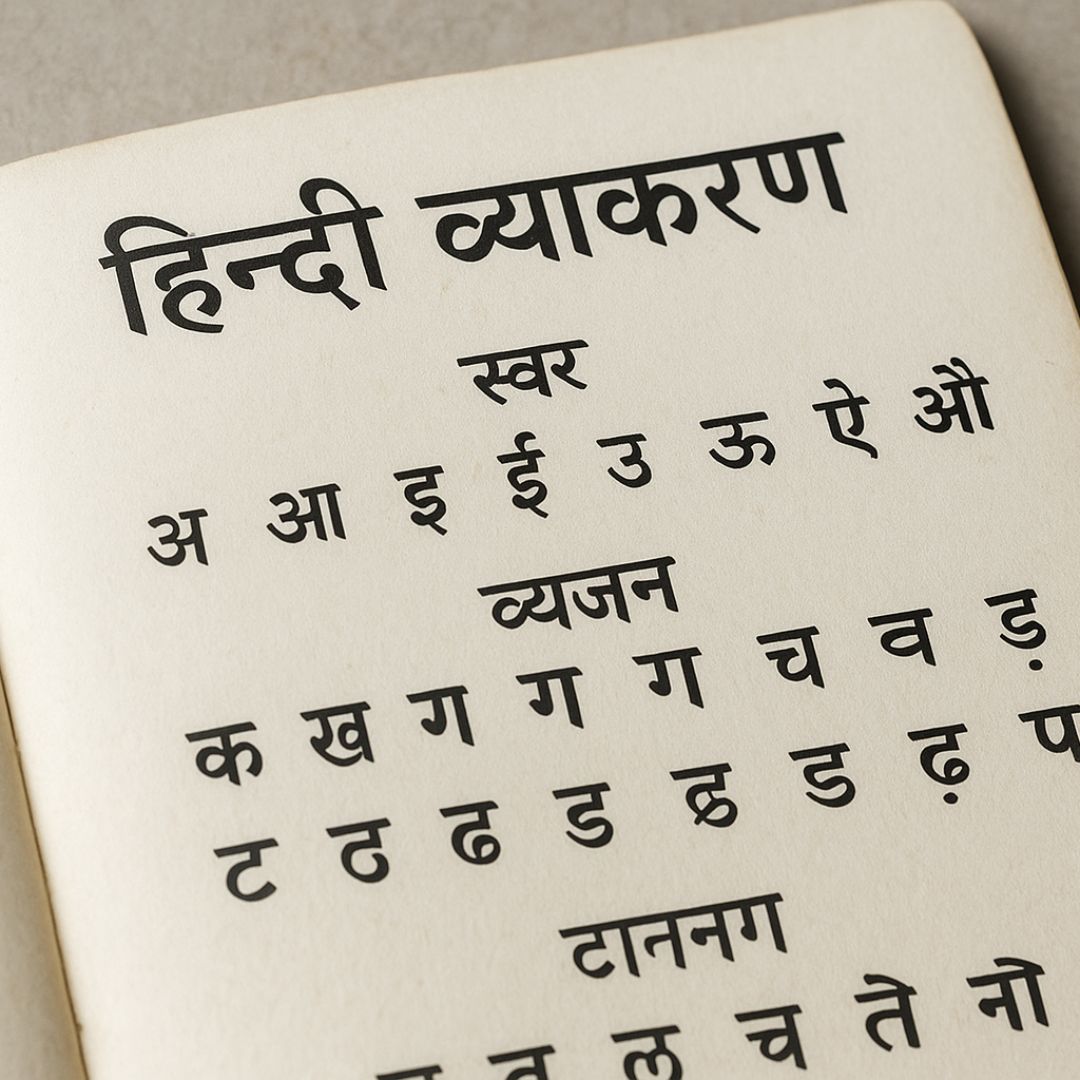 हिन्दी व्याकरण
स्वर
अ आ इ ई उ ऊ ऐ औ
व्यजन
क ख ग ग ग च व ड़
ट ठ ढ ड ढ ड ढ़ प
टाननग
ल च ते नो